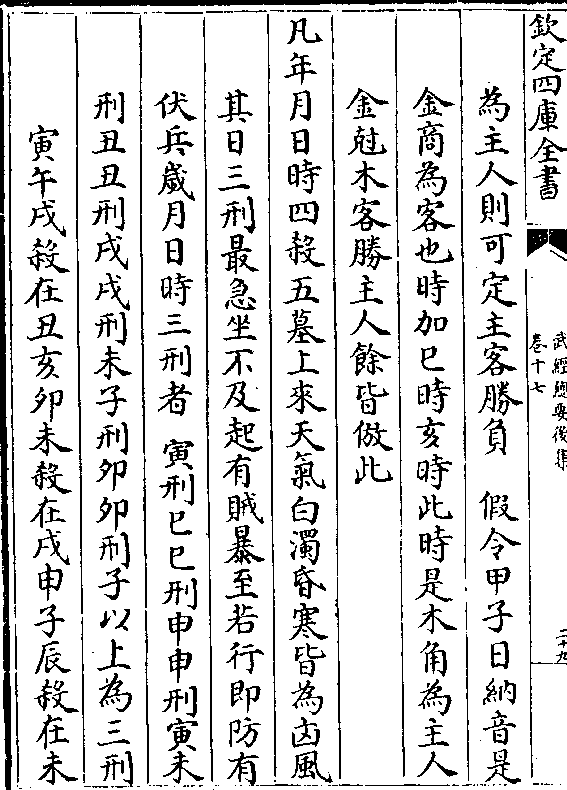 欽定四庫全書
武經總要後集
卷十七
二十九
為主人則可定主客勝負　假令甲子日納音是
金商為客也時加巳時亥時此時是木角為主人
金尅木客勝主人餘皆倣此
凡年月日時四殺五墓上來天氣白濁昏寒皆為凶風
其日三刑最急坐不及起有賊暴至若行即防有
伏兵歲月日時三刑者　寅刑巳巳刑申申刑寅未
刑丑丑刑戌戌刑未子刑卯卯刑子以上為三刑
寅午戌殺在丑亥卯未殺在戌申子辰殺在未